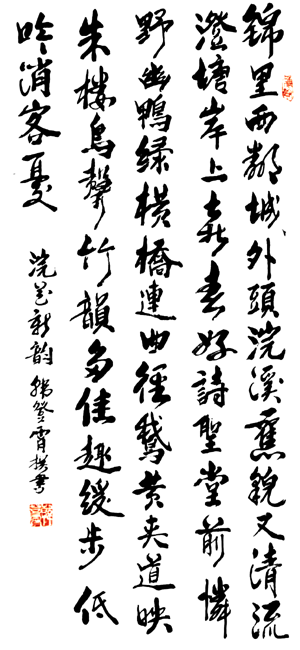 錦里西鄰城外頭浣溪舊貌又清流
澄塘岸上喜春好詩聖堂前憐
野幽鴨綠橫橋連曲徑鵝黃夾道映
朱樓鳥聲竹韻多佳趣緩步低
吟消客憂
浣花新韵 登霄撰書